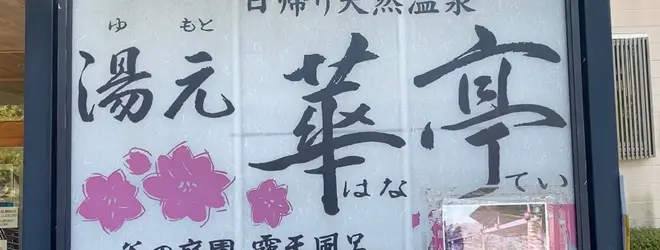 日帰り天然温泉
ゆ もと
湯元 華亭
はな てい
の庭園 露天風呂